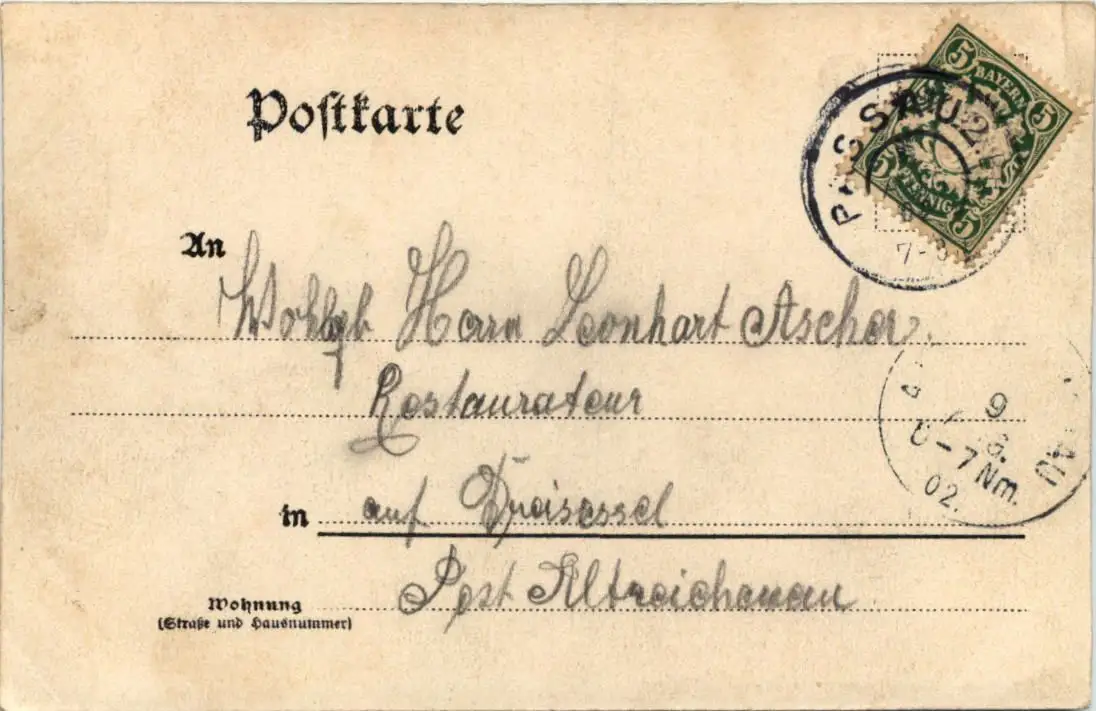 Postkarte
5 BAYERN 5
5 PFENNIG 5
PASSAU 2.
7-8
An
Wohlgb Herrn Leonhart Ascher,
Restaurateur
in auf Dreisessel
Post Altreichenau
Wohnung
(Straße und Hausnummer)
9
6.
6-7 Nm.
02.
AU